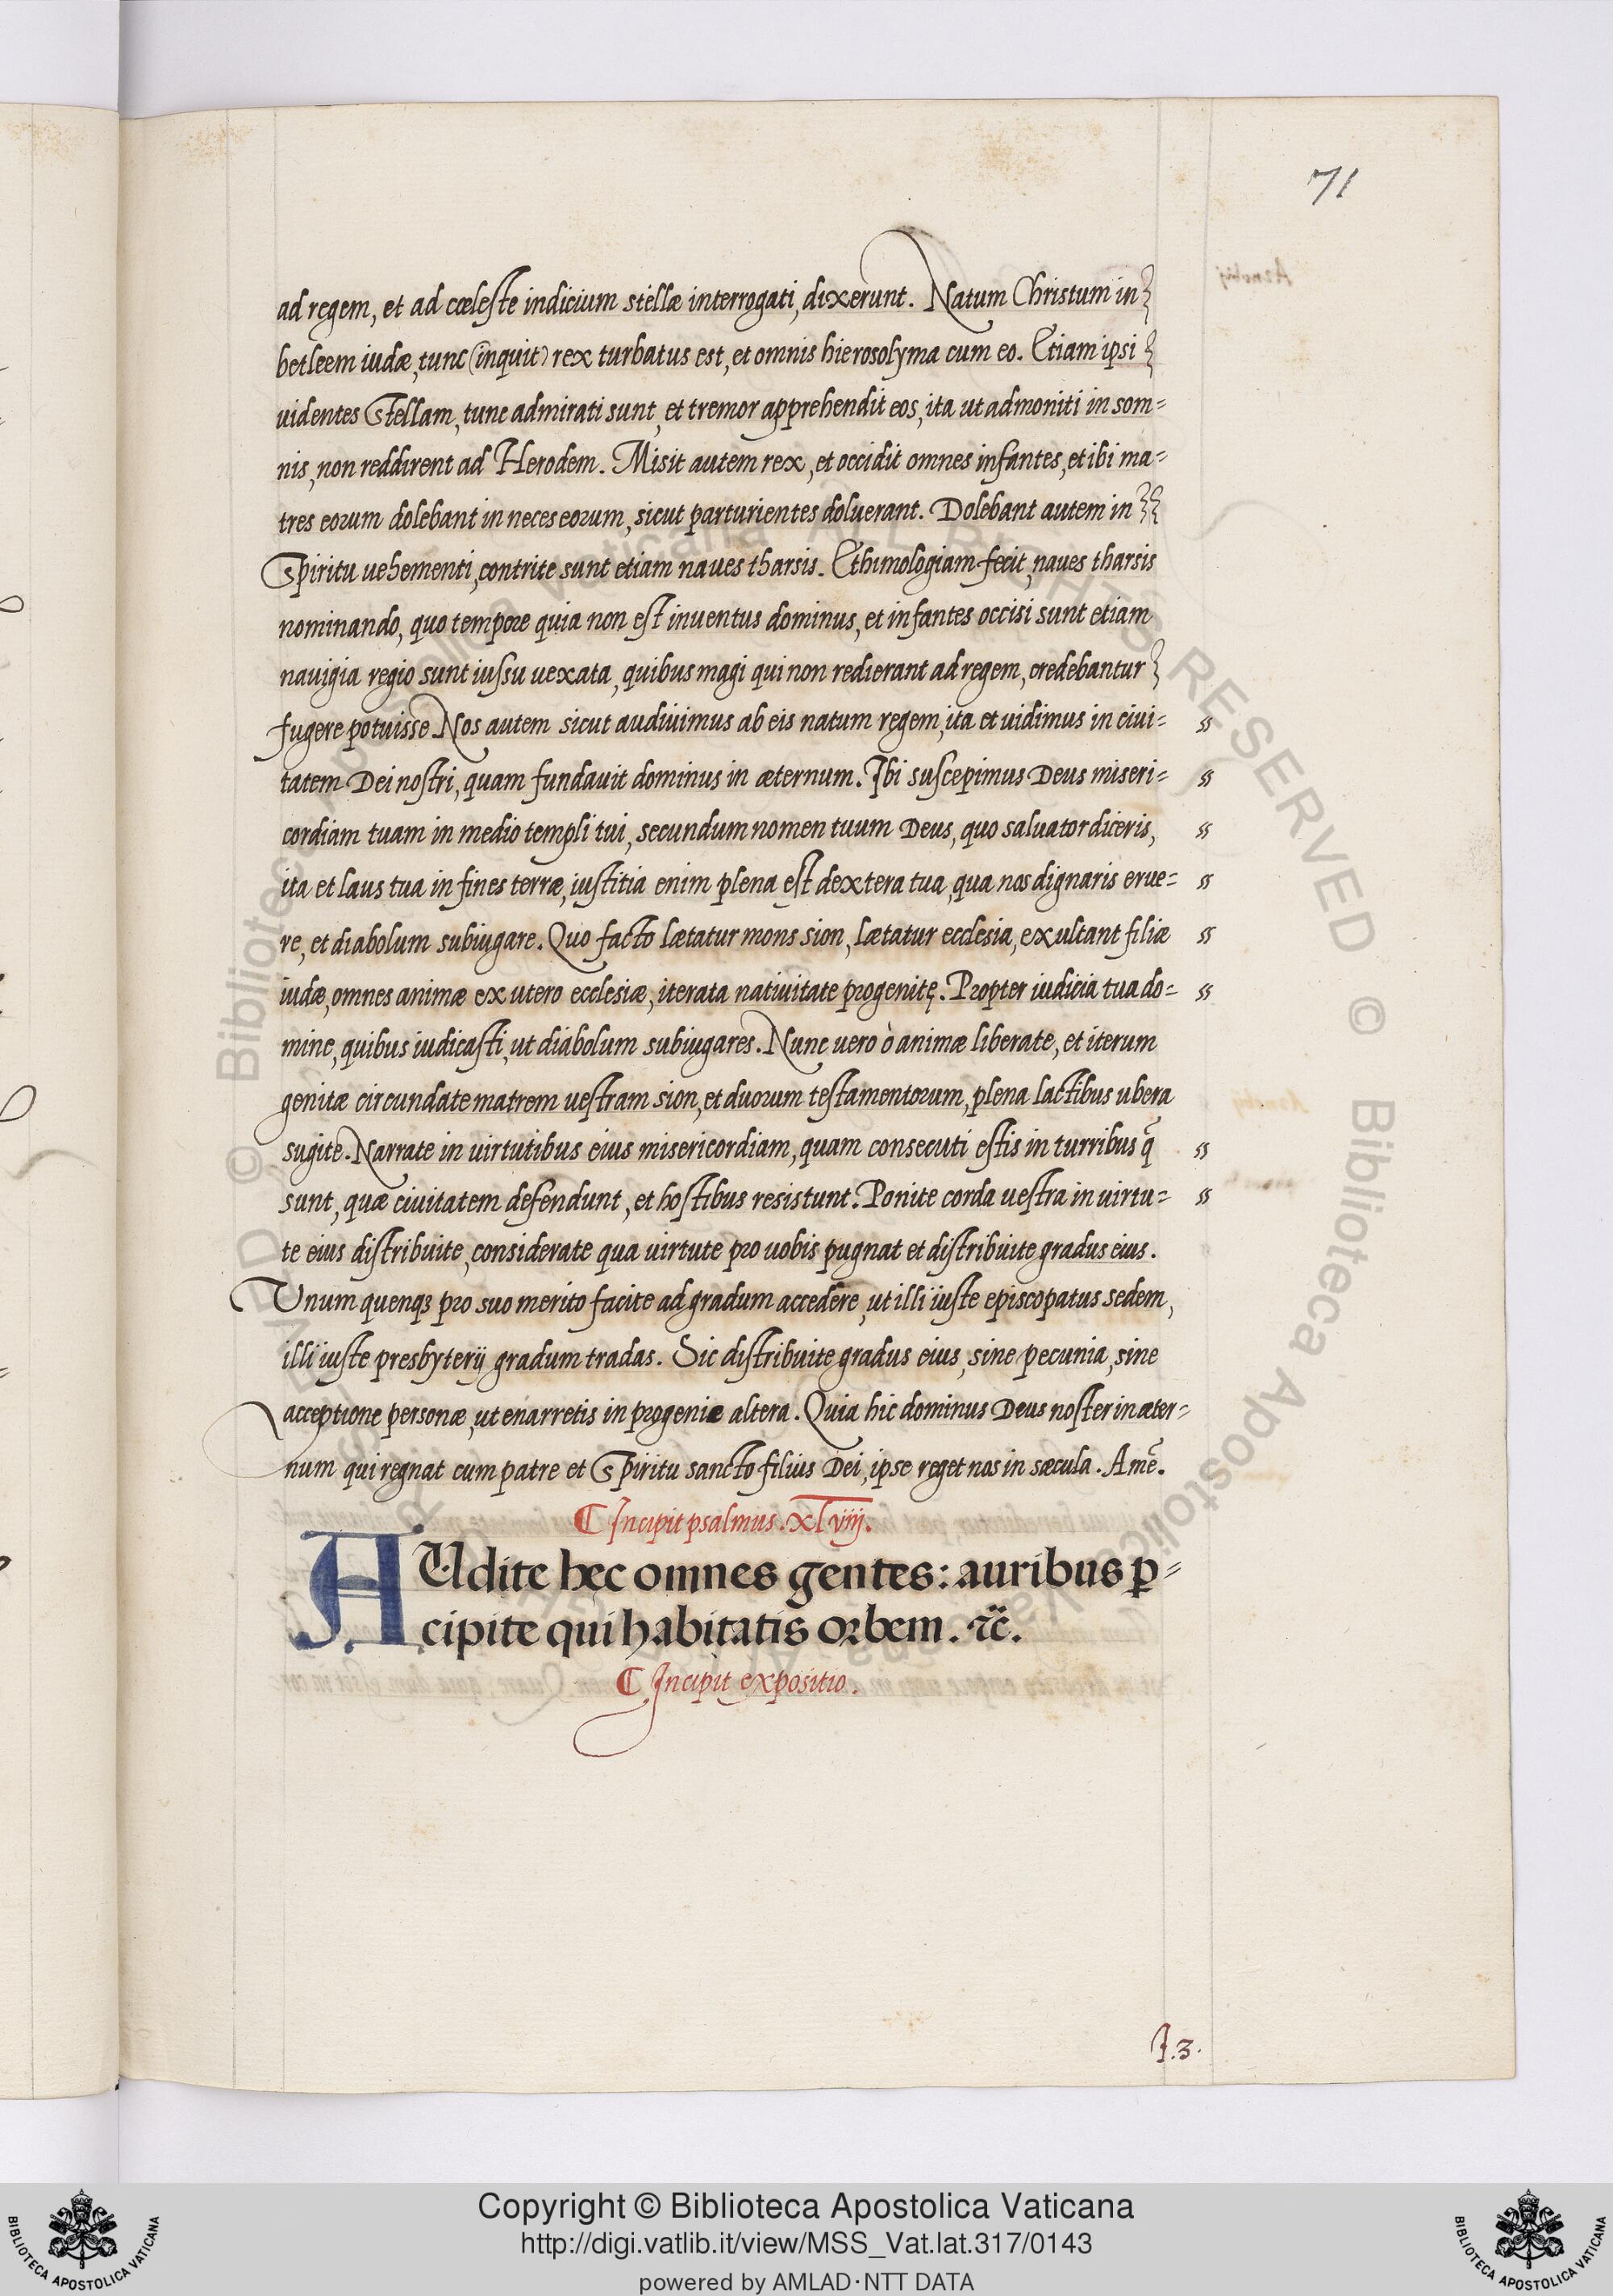 71
ad regem, et ad cœleste indicium stellæ interrogati, dixerunt. Natum Christum in
betleem iudæ, tunc (inquit) rex turbatus est, et omnis hierosolyma cum eo. Etiam ipsi
uidentes Stellam, tunc admirati sunt, et tremor apprehendit eos, ita ut admoniti in som=
nis, non reddirent ad Herodem. Misit autem rex, et occidit omnes infantes, et ibi ma=
tres eorum dolebant in neces eorum, sicut parturientes doluerant. Dolebant autem in
Spiritu uehementi, contrite sunt etiam naues tharsis. Ethimologiam fecit, naues tharsis
nominando, quo tempore quia non est inuentus dominus, et infantes occisi sunt etiam
nauigia regio sunt iussu uexata, quibus magi qui non redierant ad regem, credebantur
fugere potuisse Nos autem sicut audiuimus ab eis natum regem, ita et uidimus in ciui=
tatem Dei nostri, quam fundauit dominus in æternum. Ibi suscepimus Deus miseri=
cordiam tuam in medio templi tui, secundum nomen tuum Deus, quo saluator diceris,
ita et laus tua in fines terræ, iustitia enim plena est dextera tua, qua nos dignaris erue=
re, et diabolum subiugare. Quo facto lætatur mons sion, lætatur ecclesia, exultant filiæ
iudæ, omnes animæ ex utero ecclesiæ, iterata natiuitate progenitę. Propter iudicia tua do=
mine, quibus iudicasti, ut diabolum subiugares. Nunc uero ò animæ liberate, et iterum
genitæ circundate matrem uestram sion, et duorum testamentorum, plena lactibus ubera
sugite. Narrate in uirtutibus eius misericordiam, quam consecuti estis in turribus q̃
sunt, quæ ciuitatem defendunt, et hostibus resistunt. Ponite corda uestra in uirtu=
te eius distribuite, considerate qua uirtute pro uobis pugnat et distribuite gradus eius.
Vnum quenqꝫ pro suo merito facite ad gradum accedere, ut illi iuste episcopatus sedem,
illi iuste presbyterij gradum tradas. Sic distribuite gradus eius, sine pecunia, sine
acceptione personæ, ut enarretis in progeniæ altera. Quia hic dominus Deus noster in æter=
num qui regnat cum patre et Spiritu sancto filius Dei, ipse reget nos in sæcula. Amẽ.
¶ Incipit psalmus. xlviij.
AUdite hęc omnes gentes: auribus ꝑ=
cipite qui habitatis orbem. ⁊c̃.
¶ Incipit expositio.
I.3.
Copyright © Biblioteca Apostolica Vaticana
http://digi.vatlib.it/view/MSS_Vat.lat.317/0143
powered by AMLAD·NTT DATA